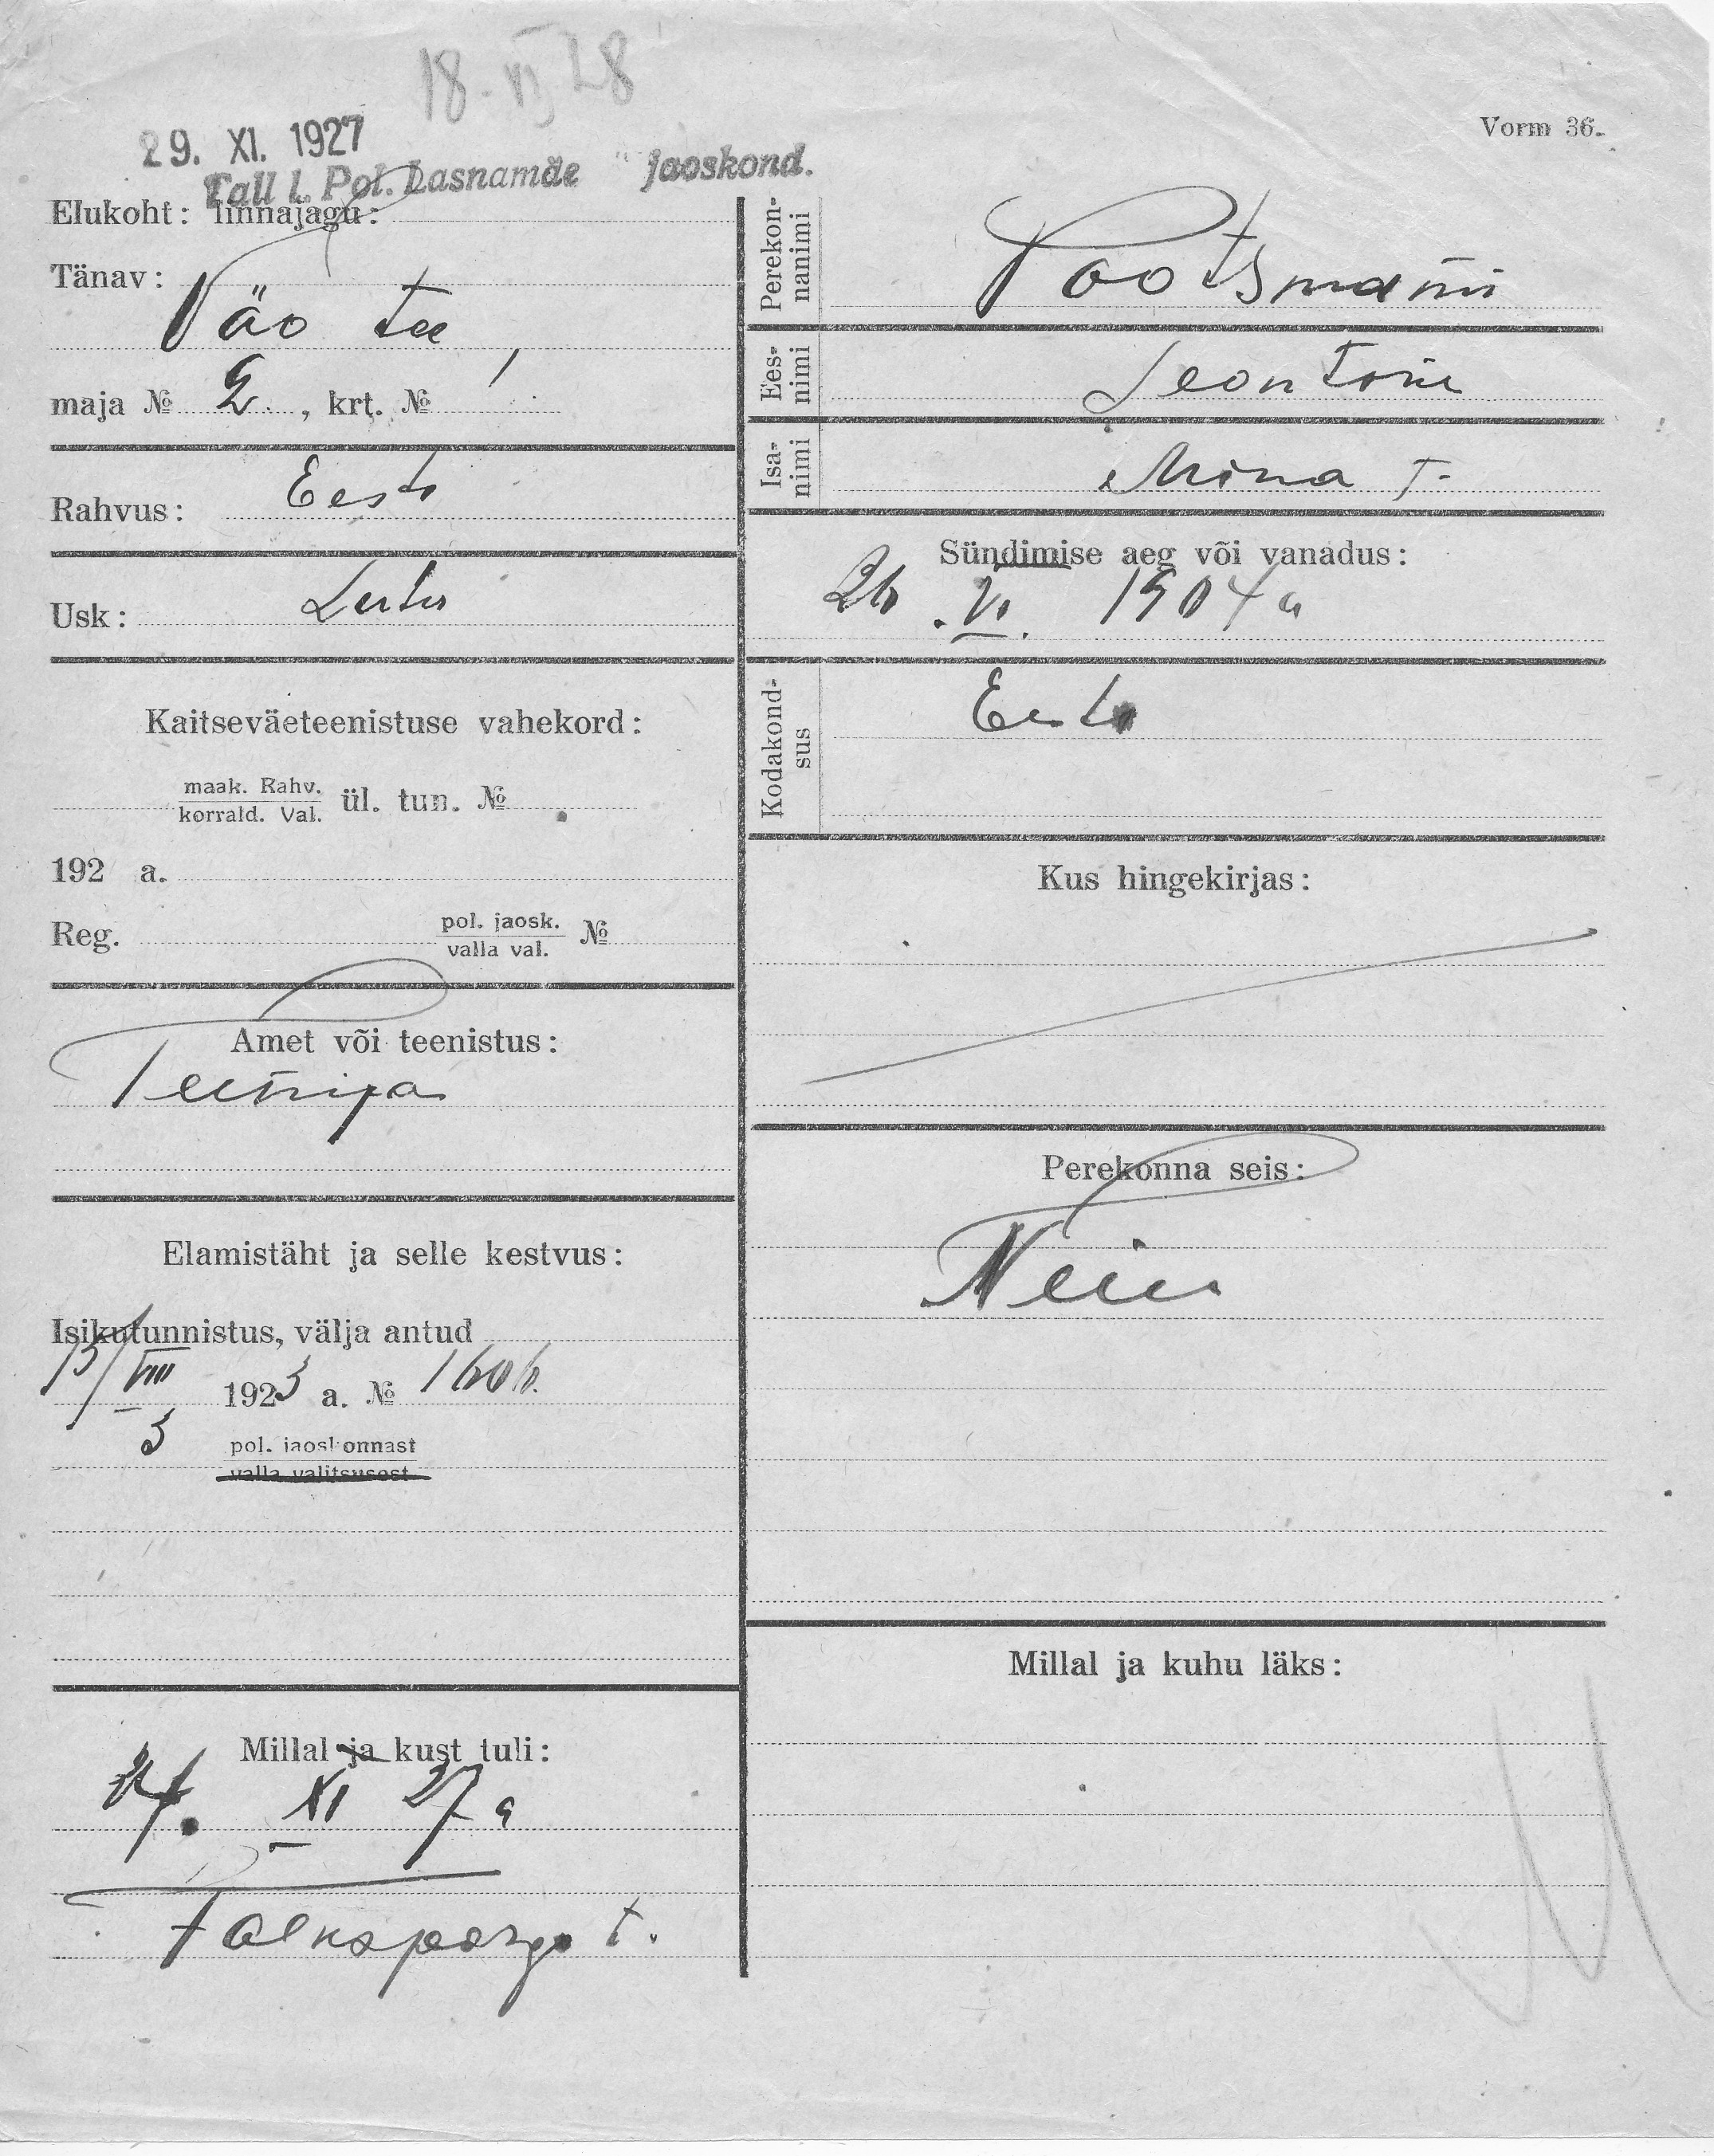 18. VI 28
29. XI. 1927
Vorm 36.
Tall l. Pol. Lasnamäe " jaoskond.
Elukoht: linnajagu:
Tänav:
Väo tee
maja № 2. , krt. №
Rahvus: Eesti
Usk: Luter
Kaitseväeteenistuse vahekord:
maak. Rahv.
korrald. Val. ül. tun. №
192 a.
Reg. pol. jaosk. №
valla val.
Amet või teenistus:
Teenija
Elamistäht ja selle kestvus:
Isikutunnistus, välja antud
13/VIII 1923 a. № 1606.
3 pol. jaoskonnast
valla valitsusest
Millal ja kust tuli:
24. XI 27 a
Falkspargi t.
Perekon-
nanimi
Pootsmann
Ees-
nimi
Leontine
Isa-
nimi
Miina t.
Sündimise aeg või vanadus:
26. VI. 1904 a
Kodakond-
sus
Eesti
Kus hingekirjas:
Perekonna seis:
Neiu
Millal ja kuhu läks: